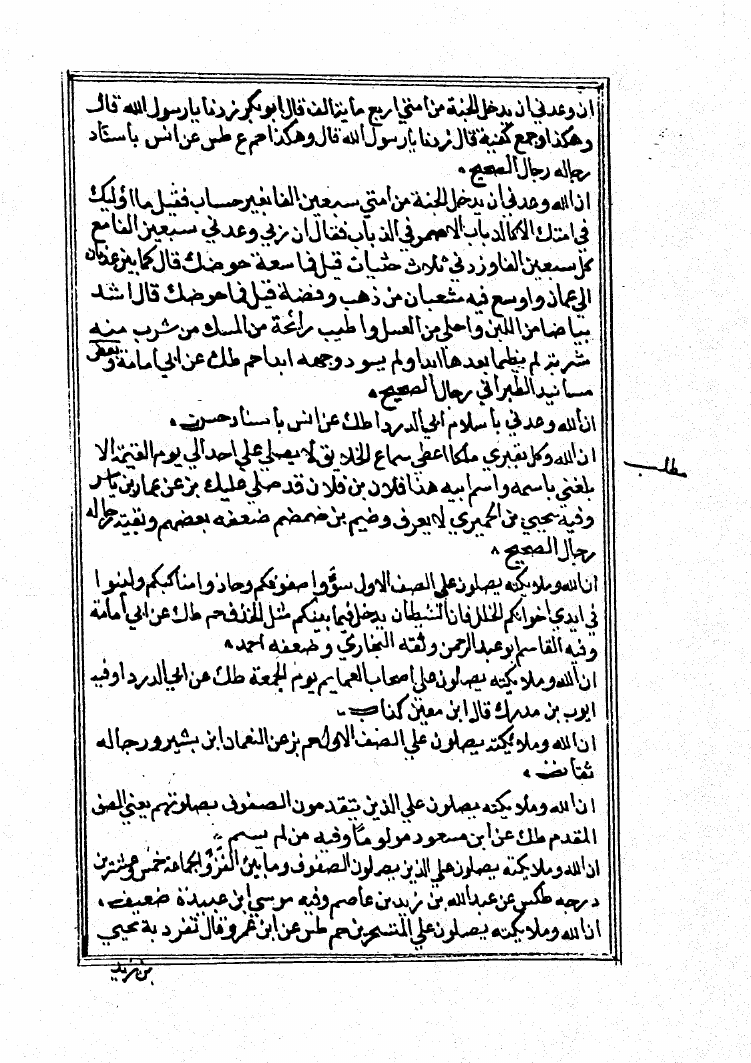 ان وعدني ان يدخل الجنة من امتي اربع ماية الف قال ابو بكر زدنا يا رسول الله قال
وهكذا وجمع كفيه قال زدنا يا رسول الله قال وهكذا حم ع طس عن انس باسناد
رجاله رجال الصحيح
ان الله وعدني ان يدخل الجنة من امتي سبعين الفا بغير حساب فقيل ما اوليك
في امتك الا كالذباب الاصهر في الذباب فقال ان ربي وعدني سبعين الفا مع
كل سبعين الفا وزدني ثلاث حثيات قيل فما سعة حوضك قال كما بين عدن
الي عمان واوسع فيه مثعبان من ذهب وفضة قيل فما حوضك قال اشد
بياضا من اللبن واحلي من العسل واطيب رائحة من المسك من شرب منه
شربة لم يظما بعدها ابدا ولم يسود وجهه ابدا حم طك عن ابي امامة وبعض
مسانيد الطبراني رجال الصحيح
ان الله وعدني باسلام ابي الدرداء طك عن انس باسناد حسن
ان الله وكل بقبري ملكا اعطي سماع الخلايق لا يصلي علي احد الي يوم القيمة الا
مطلب
بلغني باسمه واسم ابيه هذا فلان بن فلان قد صلي عليك بز عن عمار بن ياسر
وفيه يحيي بن الحميري لا يعرف وضيم بن ضمضم ضعفه بعضهم وبقية رجاله
رجال الصحيح
ان الله وملايكته يصلون علي الصف الاول سووا صفوفكم وحاذوا مناكبكم ولينوا
في ايدي اخوانكم الخلل فان الشيطان يدخل فيما بينكم مثل الخذف حم طك عن ابي امامة
وفيه القاسم ابو عبد الرحمن وثقه البخاري وضعفه احمد
ان الله وملايكته يصلون علي اصحاب العمايم يوم الجمعة طك عن ابي الدرداء وفيه
ايوب بن مدرك قال ابن معين كذاب
ان الله وملائكته يصلون علي الصف الاول حم بز عن النعمان ابن بشير ورجاله
ثقات
ان الله وملايكته يصلون علي الذين يتقدمون الصفوف بصلوتهم يعني الصف
المقدم طك عن ابن مسعود وفيه من لم يسم
ان الله وملايكته يصلون علي الذين يصلون الصفوف وما بين الفذ والجماعة خمس وعشرين
درجه طكس عن عبد الله بن زيد بن عاصم وفيه موسي ابن عبيدة ضعيف
ان الله وملايكته يصلون علي المتسحرين حم طس عن ابن عمر وقال تفرد به يحيي
بن زيد